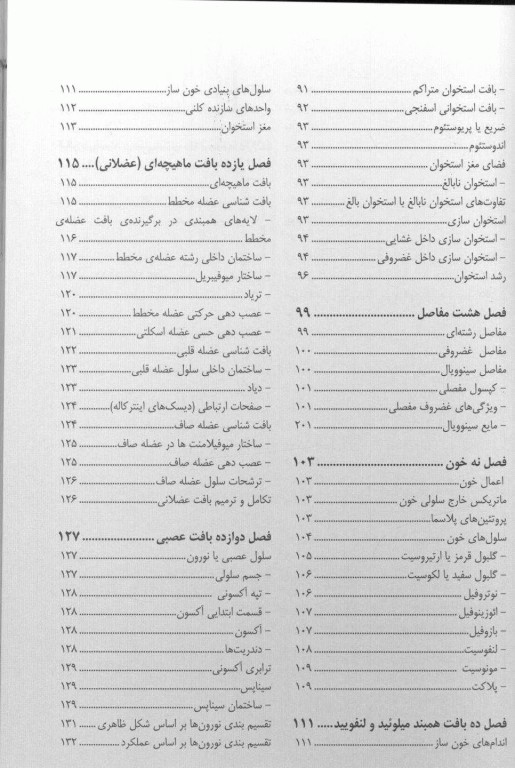 - بافت استخوان متراکم ........ ۹۱
- بافت استخوانی اسفنجی ........ ۹۲
ضریع یا پریوستئوم ........ ۹۳
اندوستئوم ........ ۹۳
فضای مغز استخوان ........ ۹۳
- استخوان نابالغ ........ ۹۳
تفاوت‌های استخوان نابالغ با استخوان بالغ ........ ۹۳
استخوان سازی ........ ۹۳
- استخوان سازی داخل غشایی ........ ۹۴
- استخوان سازی داخل غضروفی ........ ۹۴
رشد استخوان ........ ۹۶
فصل هشت مفاصل ........ ۹۹
مفاصل رشته‌ای ........ ۹۹
مفاصل غضروفی ........ ۱۰۰
مفاصل سینوویال ........ ۱۰۰
- کپسول مفصلی ........ ۱۰۱
- ویژگی‌های غضروف مفصلی ........ ۱۰۱
- مایع سینوویال ........ ۲۰۱
فصل نه خون ........ ۱۰۳
اعمال خون ........ ۱۰۳
ماتریکس خارج سلولی خون ........ ۱۰۳
پروتئین‌های پلاسما ........ ۱۰۳
سلول‌های خون ........ ۱۰۴
- گلبول قرمز یا ارتیروسیت ........ ۱۰۵
- گلبول سفید یا لکوسیت ........ ۱۰۶
- نوتروفیل ........ ۱۰۶
- ائوزینوفیل ........ ۱۰۷
- بازوفیل ........ ۱۰۷
- لنفوسیت ........ ۱۰۸
- مونوسیت ........ ۱۰۹
- پلاکت ........ ۱۰۹
فصل ده بافت همبند میلوئید و لنفویید ..... ۱۱۱
اندام‌های خون ساز ........ ۱۱۱
سلول‌های بنیادی خون ساز ........ ۱۱۱
واحدهای سازنده کلنی ........ ۱۱۲
مغز استخوان ........ ۱۱۳
فصل یازده بافت ماهیچه‌ای (عضلانی) .... ۱۱۵
بافت ماهیچه‌ای ........ ۱۱۵
بافت شناسی عضله مخطط ........ ۱۱۵
- لایه‌های همبندی در برگیرنده‌ی بافت عضله‌ی
مخطط ........ ۱۱۶
- ساختمان داخلی رشته عضله‌ی مخطط ........ ۱۱۷
- ساختار میوفیبریل ........ ۱۱۷
- تریاد ........ ۱۲۰
- عصب دهی حرکتی عضله مخطط ........ ۱۲۰
- عصب دهی حسی عضله اسکلتی ........ ۱۲۱
بافت شناسی عضله قلبی ........ ۱۲۲
- ساختمان داخلی سلول عضله قلبی ........ ۱۲۳
- دیاد ........ ۱۲۳
- صفحات ارتباطی (دیسک‌های اینترکاله) ........ ۱۲۴
بافت شناسی عضله صاف ........ ۱۲۴
- ساختار میوفیلامنت ها در عضله صاف ........ ۱۲۵
- عصب دهی عضله صاف ........ ۱۲۵
- ترشحات سلول عضله صاف ........ ۱۲۶
تکامل و ترمیم بافت عضلانی ........ ۱۲۶
فصل دوازده بافت عصبی ........ ۱۲۷
سلول عصبی یا نورون ........ ۱۲۷
- جسم سلولی ........ ۱۲۷
- تپه آکسونی ........ ۱۲۸
- قسمت ابتدایی آکسون ........ ۱۲۸
- آکسون ........ ۱۲۸
- دندریت‌ها ........ ۱۲۸
ترابری آکسونی ........ ۱۲۹
سیناپس ........ ۱۲۹
- ساختمان سیناپس ........ ۱۲۹
تقسیم بندی نورون‌ها بر اساس شکل ظاهری ...... ۱۳۱
تقسیم بندی نورون‌ها بر اساس عملکرد ........ ۱۳۲